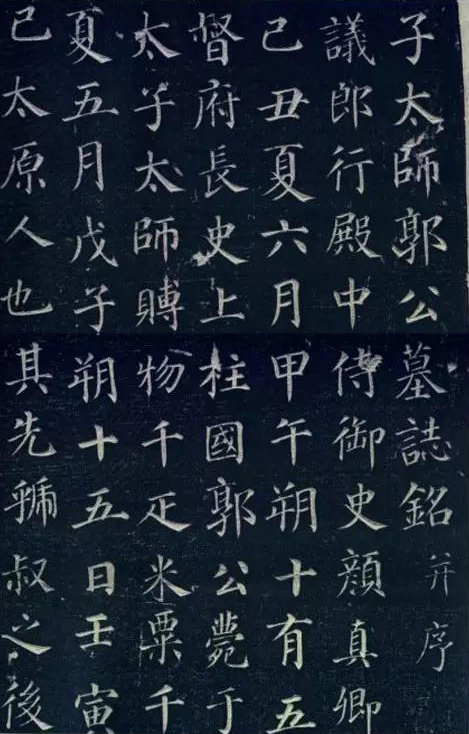 子太師郭公墓誌銘并序
議郎行殿中侍御史顏真卿
己丑夏六月甲午朔十有五
督府長史上柱國郭公薨于
太子太師賻物千疋米粟千
夏五月戊子朔十五日壬寅
已太原人也其先虢叔之後